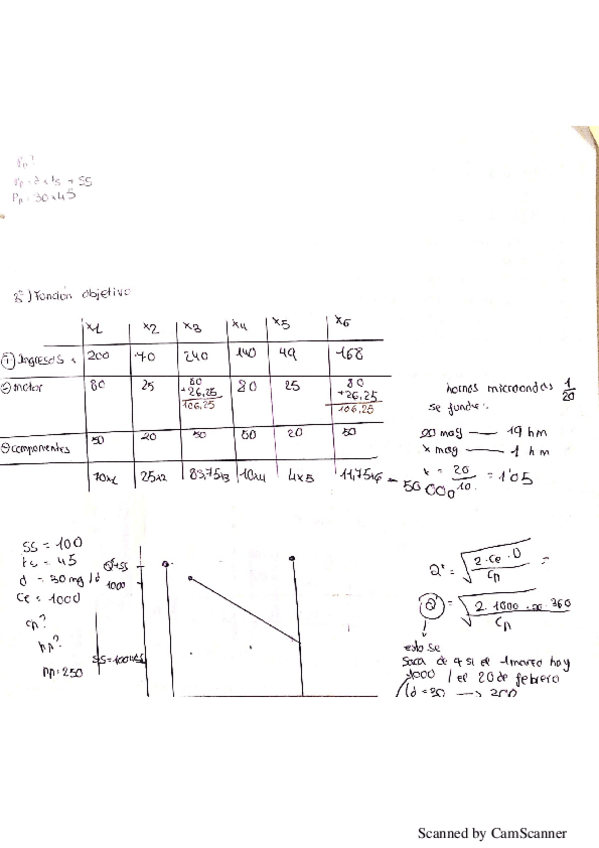 Pp?
Pp = d x ts + SS
Pp = 30 x 45
2º) Función objetivo
x1 x2 x3 x4 x5 x6
① Ingresos 200 70 240 140 49 168
② motor 80 25 80 + 26,25 106,25 80 25 80 + 26,25 106,25
componentes 50 20 50 50 20 50
70x1 25x2 83,75x3 10x4 4x5 11,75x6 - 50 000
hornos microondas 1/20
se funde:
20 mag — 19 hm
x mag — 1 hm
x = 20/19 = 1'05
SS = 100
ts = 45
d = 30 mg/d
Ce = 1000
cp?
Pp = 250
Q*+SS
1000
SS = 100
Q* = √(2·Ce·D / Cp) =
Q* = √(2·1000·30·360 / Cp)
esto se
saca de 4 si el 1 marzo hay
1000 / el 20 de febrero
Scanned by CamScanner